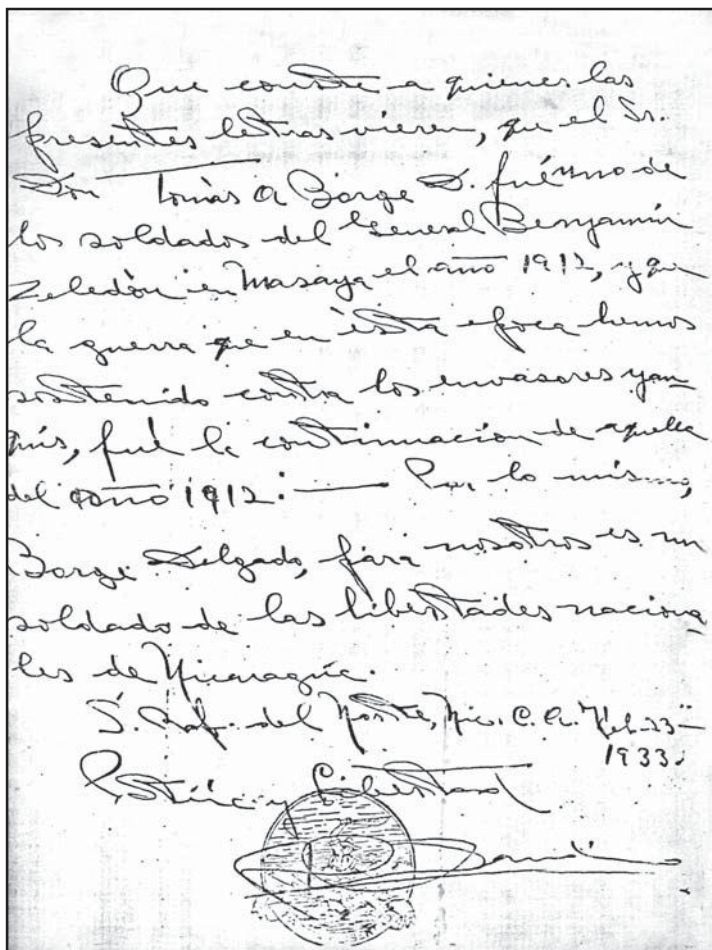 Que conste a quienes las
presentes letras vieren, que el Sr.
Don Tomás A Borge D. fué uno de
los soldados del General Benjamín
Zeledón en Masaya el año 1912, y que
la guerra que en ésta época hemos
sostenido contra los invasores yan
quis, fué la continuación de aquella
del año 1912:— Por lo mismo,
Borge Delgado, para nosotros es un
soldado de las libertades naciona
les de Nicaragua.
S. Raf. del Norte, Nic. C. A. Feb. 23—
1933.
Patria y Libertad